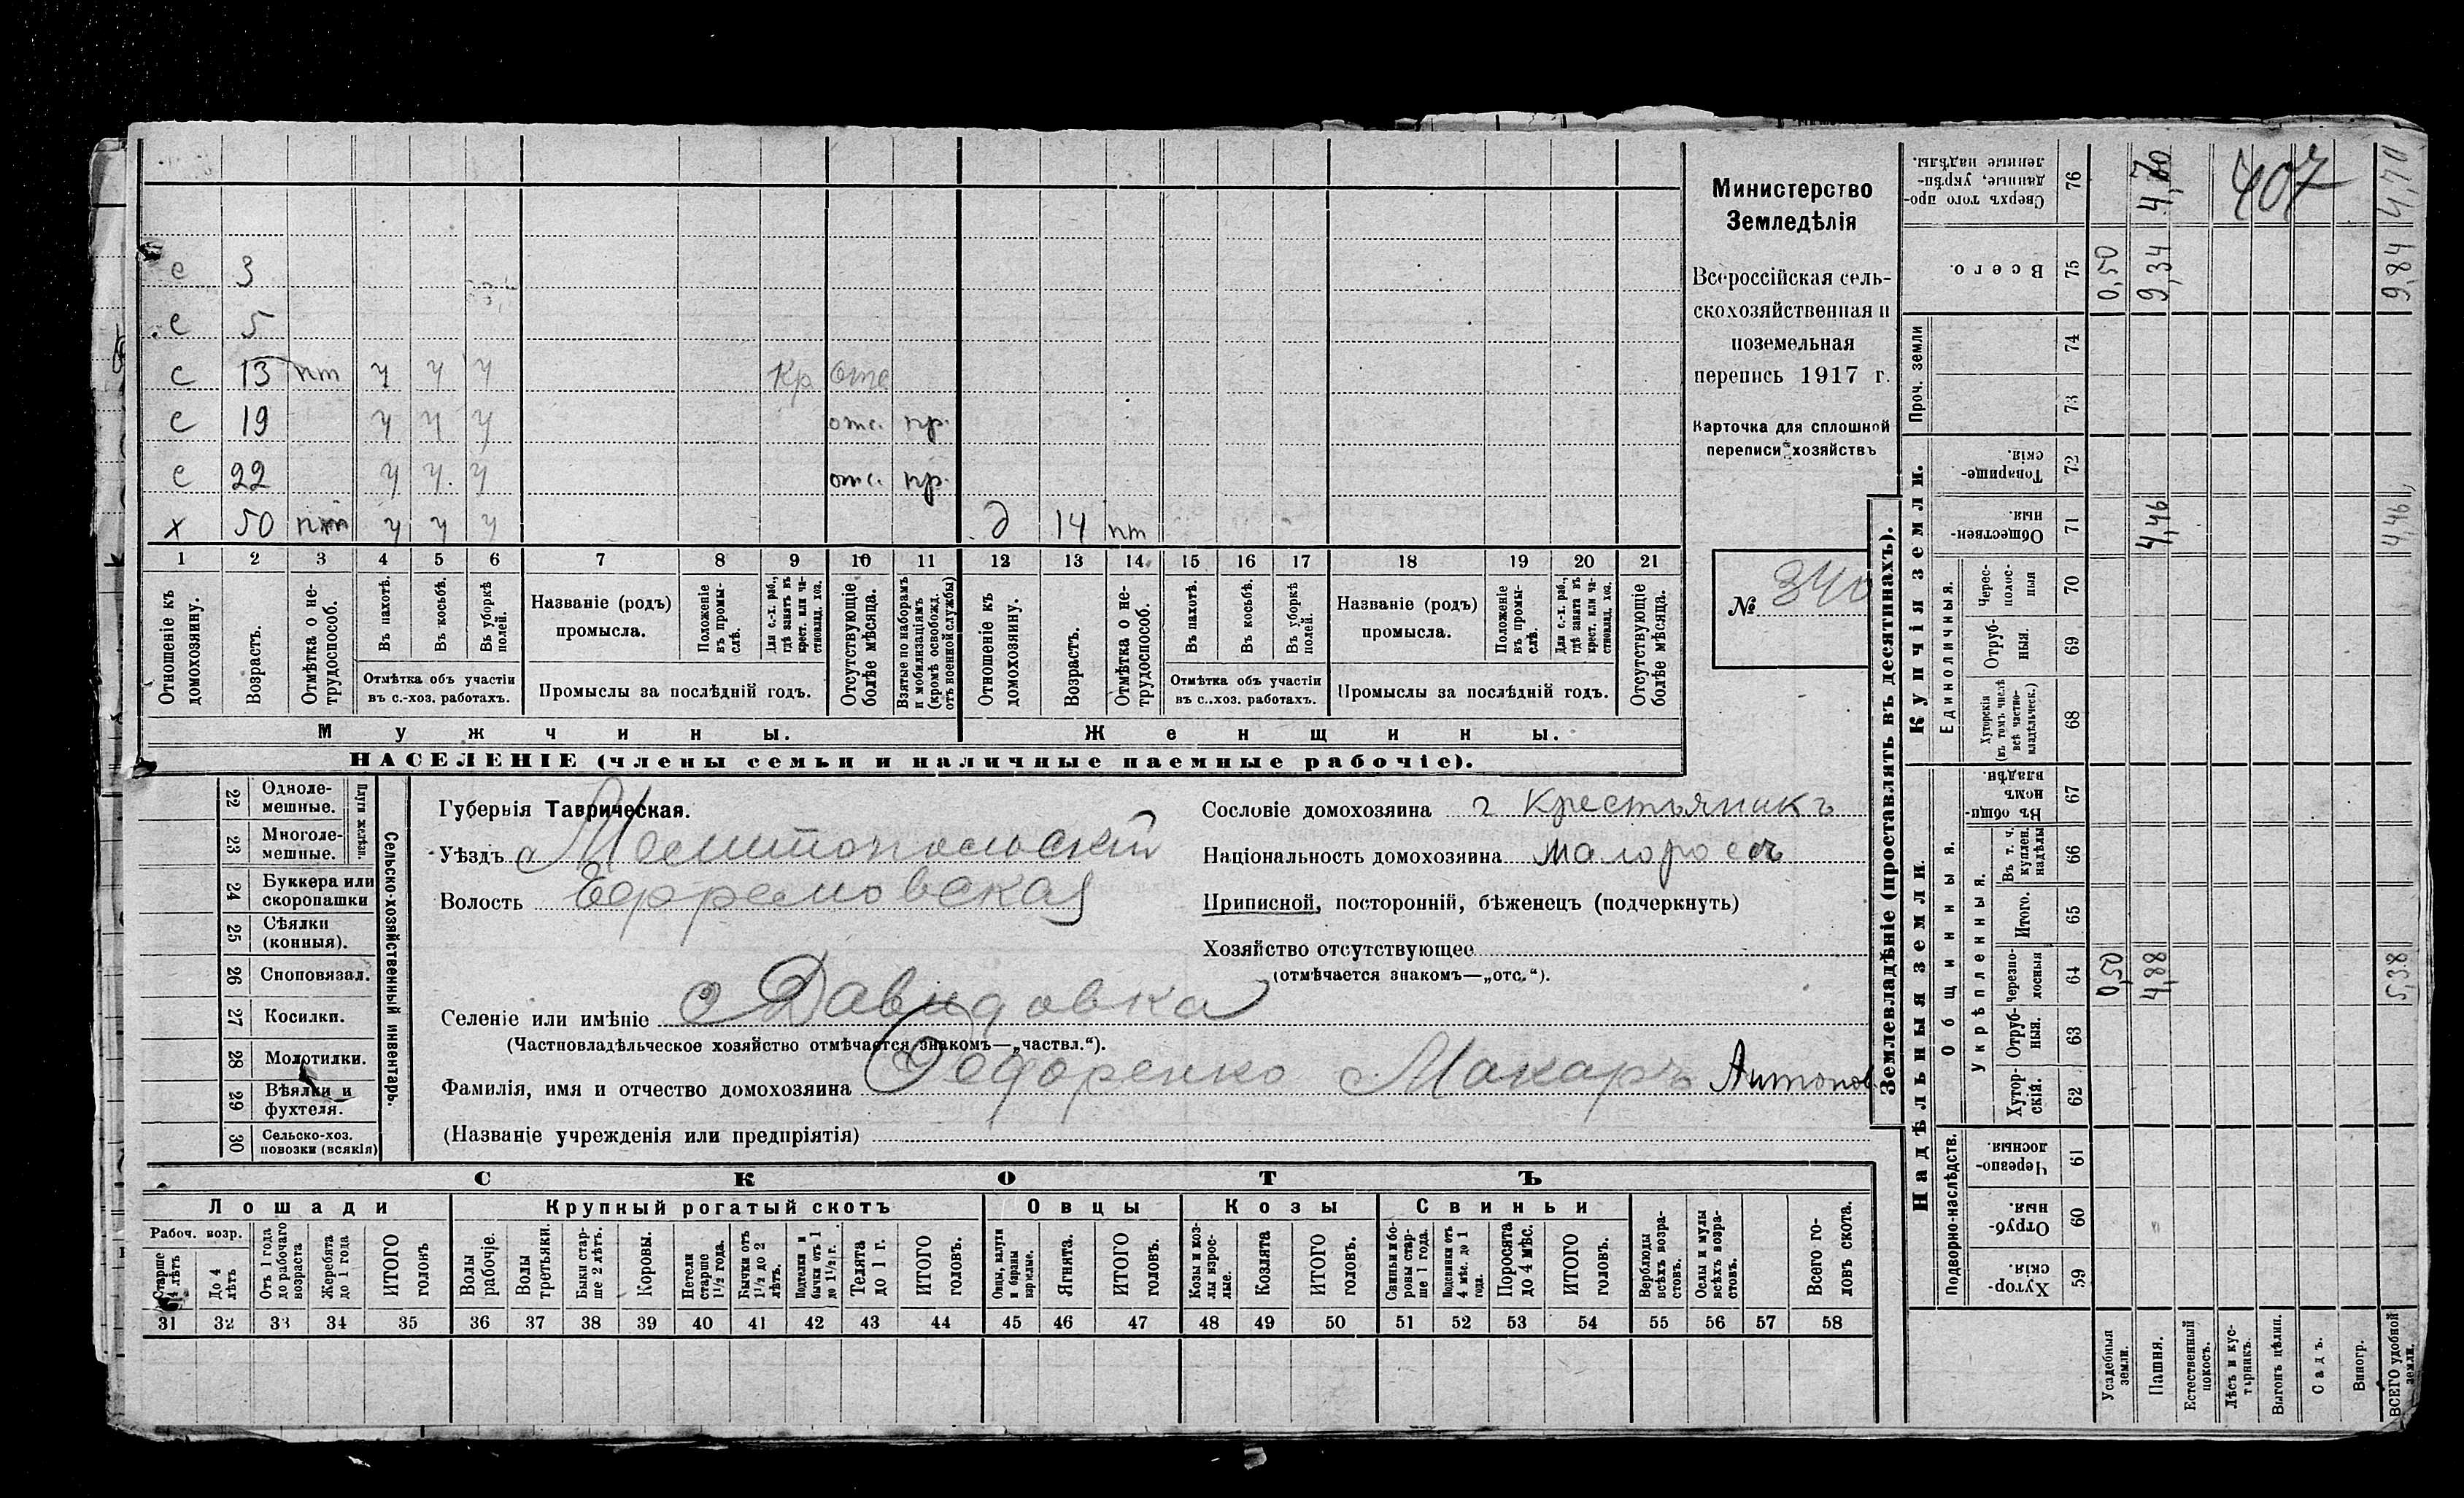 е 3
е 5
с 13 пт у у у кр отс
с 19 у у у отс. пр.
е 22 у у. у отс. пр.
х 50 пт у у у д 14 пт
1 2 3 4 5 6 7 8 9 10 11 12 13 14 15 16 17 18 19 20 21
Отношеніе къ домохозяину.
Возрастъ.
Отмѣтка о не-
трудоспособ.
Въ пахотѣ.
Въ косьбѣ.
Въ уборкѣ
полей.
Отмѣтка объ участіи
въ с.-хоз. работахъ.
Названіе (родъ)
промысла.
Положеніе
въ промы-
слѣ.
Для с.-х. раб.,
гдѣ занятъ въ
крест. или ча-
стновлад. хоз.
Промыслы за послѣдній годъ.
Отсутствующіе
болѣе мѣсяца.
Взятые по наборамъ
и мобилизаціямъ
(кромѣ освобожд.
отъ военной службы)
Отношеніе къ
домохозяину.
Возрастъ.
Отмѣтка о не-
трудоспособ.
Въ пахотѣ.
Въ косьбѣ.
Въ уборкѣ
полей.
Отмѣтка объ участіи
въ с..хоз. работахъ.
Названіе (родъ)
промысла.
Положеніе
въ промы-
слѣ.
Для с.-х. раб.,
гдѣ занята въ
крест. или ча-
стновлад. хоз.
Промыслы за послѣдній годъ.
Отсутствующіе
болѣе мѣсяца.
Мужчины.
Женщины.
НАСЕЛЕНІЕ (члены семьи и наличные наемные рабочіе).
Министерство
Земледѣлія
Всероссійская сель-
скохозяйственная и
поземельная
перепись 1917 г.
Карточка для сплошной
переписи хозяйствъ
№ 340
22 Одноле-
мешные.
23 Многоле-
мешные.
Плуги желѣзн.
24 Буккера или
скоропашки
25 Сѣялки
(конныя).
26 Сноповязал.
27 Косилки.
28 Молотилки.
29 Вѣялки и
фухтеля.
30 Сельско-хоз.
повозки (всякія)
Сельско-хозяйственный инвентарь.
Губернія Таврическая.
Уѣздъ Мелитопольскій
Волость Ефремовская
Селеніе или имѣніе с Давидовка
(Частновладѣльческое хозяйство отмѣчается знакомъ—„частвл.“).
Фамилія, имя и отчество домохозяина Федоренко Макаръ Антонов
(Названіе учрежденія или предпріятія)
Сословіе домохозяина крестьяникъ
Національность домохозяина малороссъ
Приписной, посторонній, бѣженецъ (подчеркнуть)
Хозяйство отсутствующее
(отмѣчается знакомъ—„отс.“).
СКОТЪ
Лошади
Крупный рогатый скотъ
Овцы
Козы
Свиньи
Рабоч. возр.
Старше
4 лѣтъ
До 4
лѣтъ
Отъ 1 года
до рабочаго
возраста
Жеребята
до 1 года
ИТОГО
головъ
Волы
рабочіе.
Волы
третьяки.
Быки стар-
ше 2 лѣтъ.
Коровы.
Нетели
старше
1½ года.
Бычки отъ
1½ до 2
лѣтъ.
Подтелки и
бычки отъ 1
до 1½ г.
Телята
до 1 г.
ИТОГО
головъ.
Овцы, валухи
и бараны
взрослые.
Ягнята.
ИТОГО
головъ.
Козы и коз-
лы взрос-
лые.
Козлята
ИТОГО
головъ.
Свиньи и бо-
ровы стар-
ше 1 года.
Подсвинки отъ
4 мѣс. до 1
года.
Поросята
до 4 мѣс.
ИТОГО
головъ.
Верблюды
всѣхъ возра-
стовъ.
Ослы и мулы
всѣхъ возра-
стовъ.
Всего го-
ловъ скота.
31 32 33 34 35 36 37 38 39 40 41 42 43 44 45 46 47 48 49 50 51 52 53 54 55 56 57 58
Землевладѣніе (проставлять въ десятинахъ).
Надѣльныя земли
Купчія земли.
Проч. земли
Подворно-наслѣдств.
Общинныя.
Укрѣпленныя.
Единоличныя.
Хутор-
скія. 59
Отруб-
ныя. 60
Черезпо-
лосныя 61
Хутор-
скія. 62
Отруб-
ныя. 63
Черезпо-
лосныя 64 0,50 4,88 5,38
Итого. 65
Въ т. ч.
куплен.
надѣлы 66
Въ общи-
номъ
владѣн. 67
Хуторскія
(въ томъ числѣ
всѣ частно-
владѣльческ.) 68
Отруб-
ныя. 69
Черес-
полос-
ныя 70
Обществен-
ныя. 71 4,46 4,46
Товарище-
скія. 72
73
74
Всего. 75 0,50 9,34 9,84
Сверхъ того про-
данные, укрѣп-
ленные надѣлы. 76 4,70 407 4,70
Усадебныя
земли.
Пашня.
Естественный
покосъ.
Лѣсъ и кус-
тарникъ.
Выгонъ цѣлин.
Садъ.
Виногр.
ВСЕГО удобной
земли.